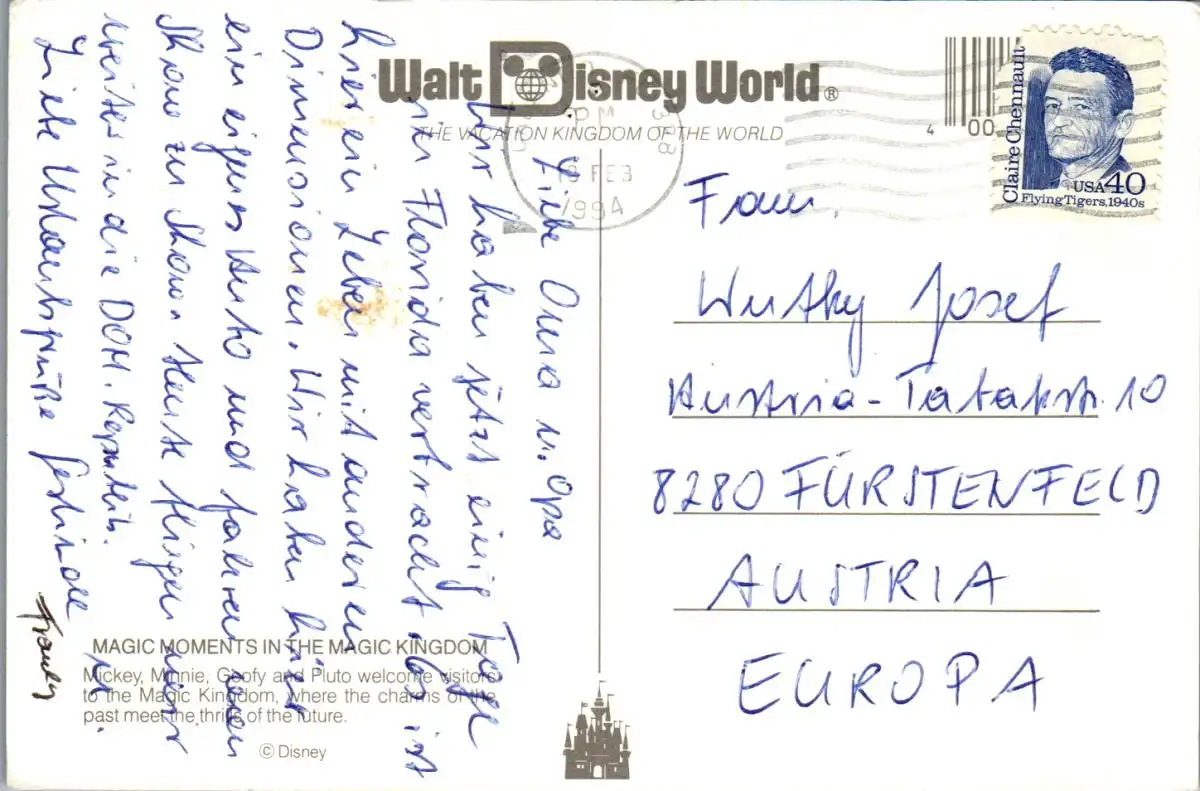 Walt Disney World®
THE VACATION KINGDOM OF THE WORLD
PM
FEB
1994
4 00
Claire Chennault
USA 40
Flying Tigers, 1940s
Liebe Oma u. Opa
Wir haben jetzt einig Tage
in Florida verbracht. Es ist
hier ein Leben mit anderen
Dimensionen. Wir haben hier
ein eigenes Auto und fahren von
Show zu Show. Heute fliegen wir
weiter in die DOM. Republik.
Liebe Urlaubsgrüße u.
Franky
Josef
Austria-Tabakstr. 10
8280 FÜRSTENFELD
AUSTRIA
EUROPA
MAGIC MOMENTS IN THE MAGIC KINGDOM
Mickey, Minnie, Goofy and Pluto welcome visitors
to the Magic Kingdom, where the charms of the
past meet the thrills of the future.
© Disney